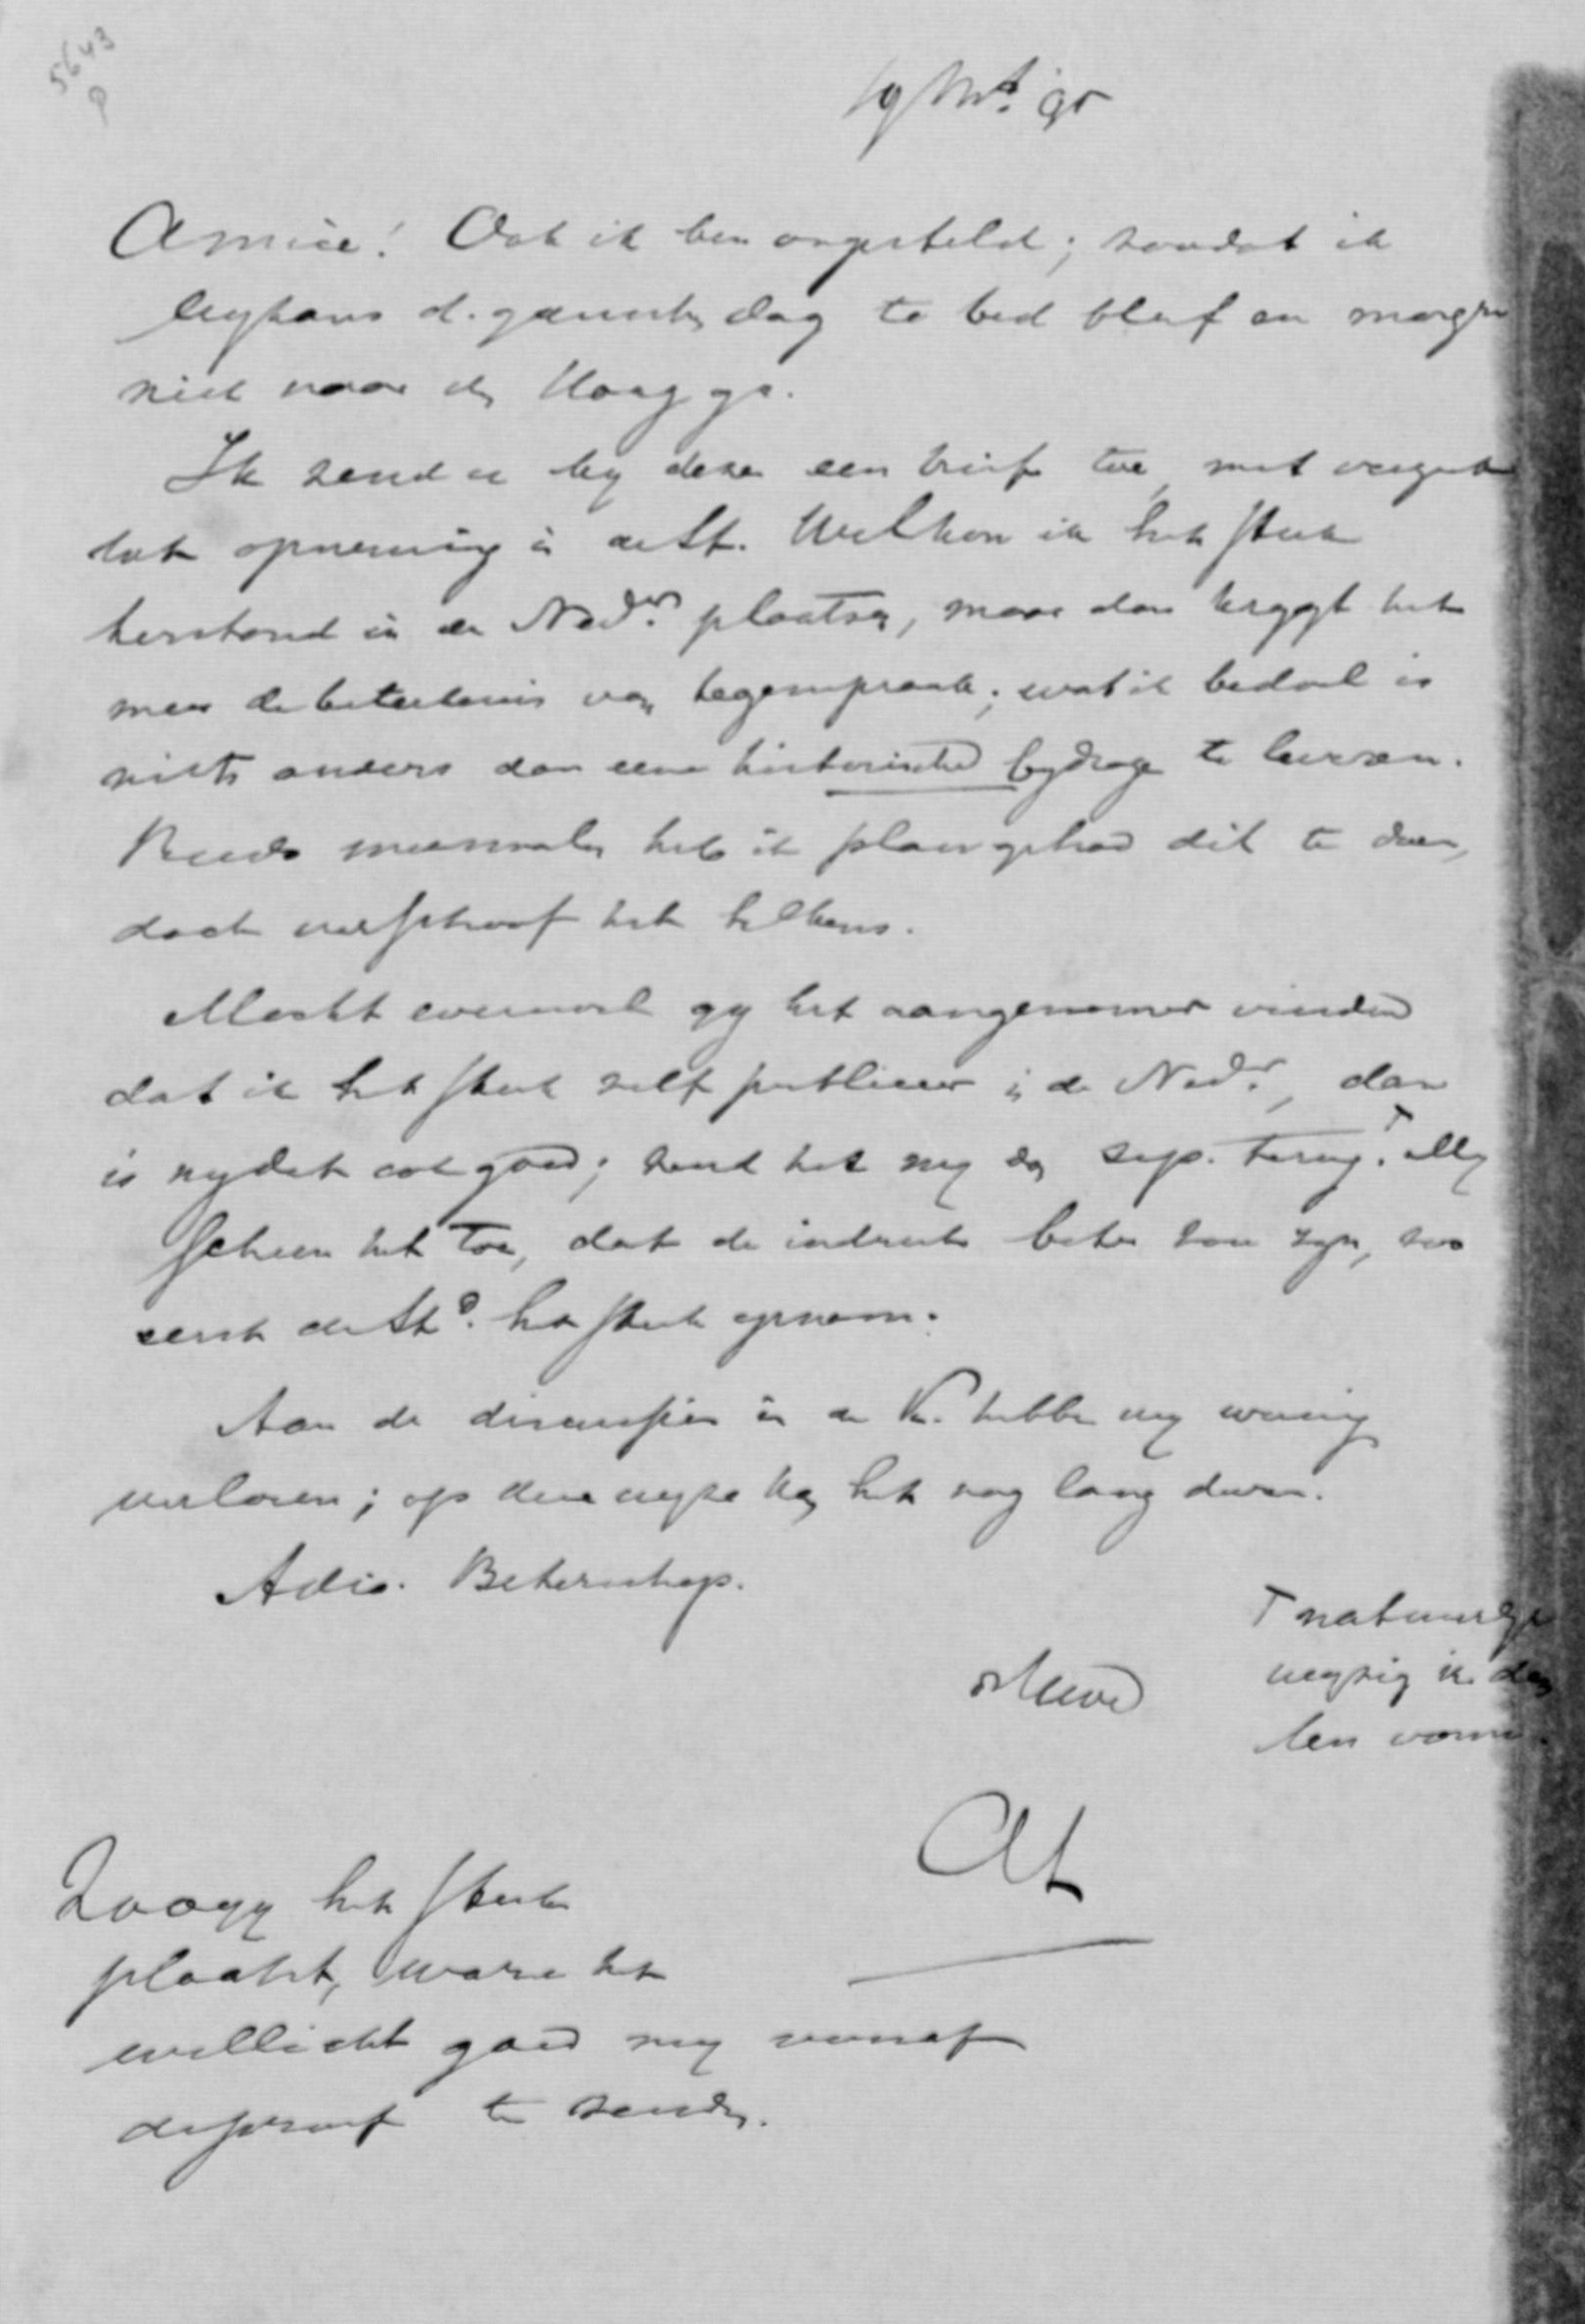 5643
19 Mrt. 95
Amice! Ook ik ben ongesteld; zoodat ik
de gansche dag te bed bleef en morgen
niet naar den Haag ga.
Ik zend u by deze een brief toe, met verzoek
tot opneming in de St. Wel kon ik het stuk
terstond in de Nedr. plaatsen, maar dan krygt het
meer de beteekenis van tegenspraak; wat ik bedoel is
niets anders dan eene historische bydrage te leveren.
Reeds meermalen heb ik plan gehad dit te doen,
doch verschoof het telkens.
Mocht evenwel gy het aangenamer vinden
dat ik het stuk zelf publiceer in de Nedr., dan
is my dat ook goed; zend het my dan s.v.p. terug. T My
scheen het toe, dat de indruk beter zou zyn, zoo
eerst de Std. het stuk opnam.
Aan de discussien in de K. hebben wy weinig
verloren; op deze wyze kan het nog lang duren.
Adio. Beterschap.
T natuurlyk
wyzig ik dan
den vorm.
Zoo gy het stuk
plaatst, ware het
wellicht goed my vooraf
de proef te zenden.